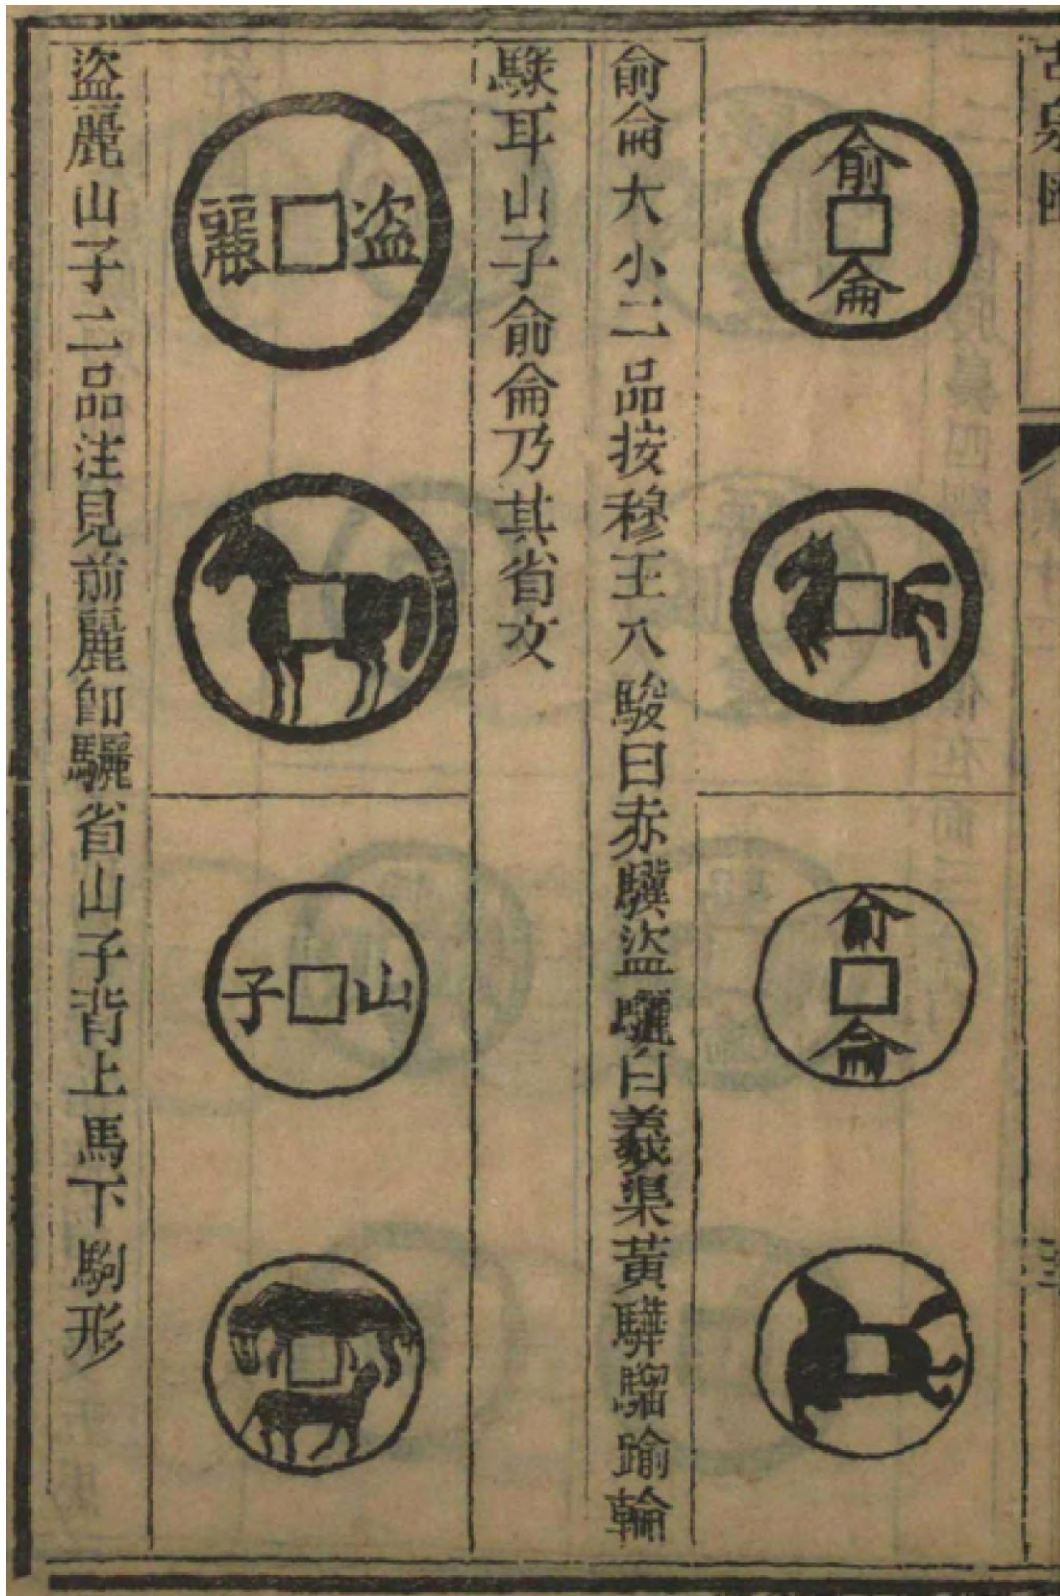 古泉匯
俞
侖
俞
侖
俞侖大小二品按穆王八駿曰赤驥盜驪白義渠黃驊騮踰輪
騄耳山子俞侖乃其省文
盜麗
山子
盜麗山子二品注見前麗卽驪省山子背上馬下駒形